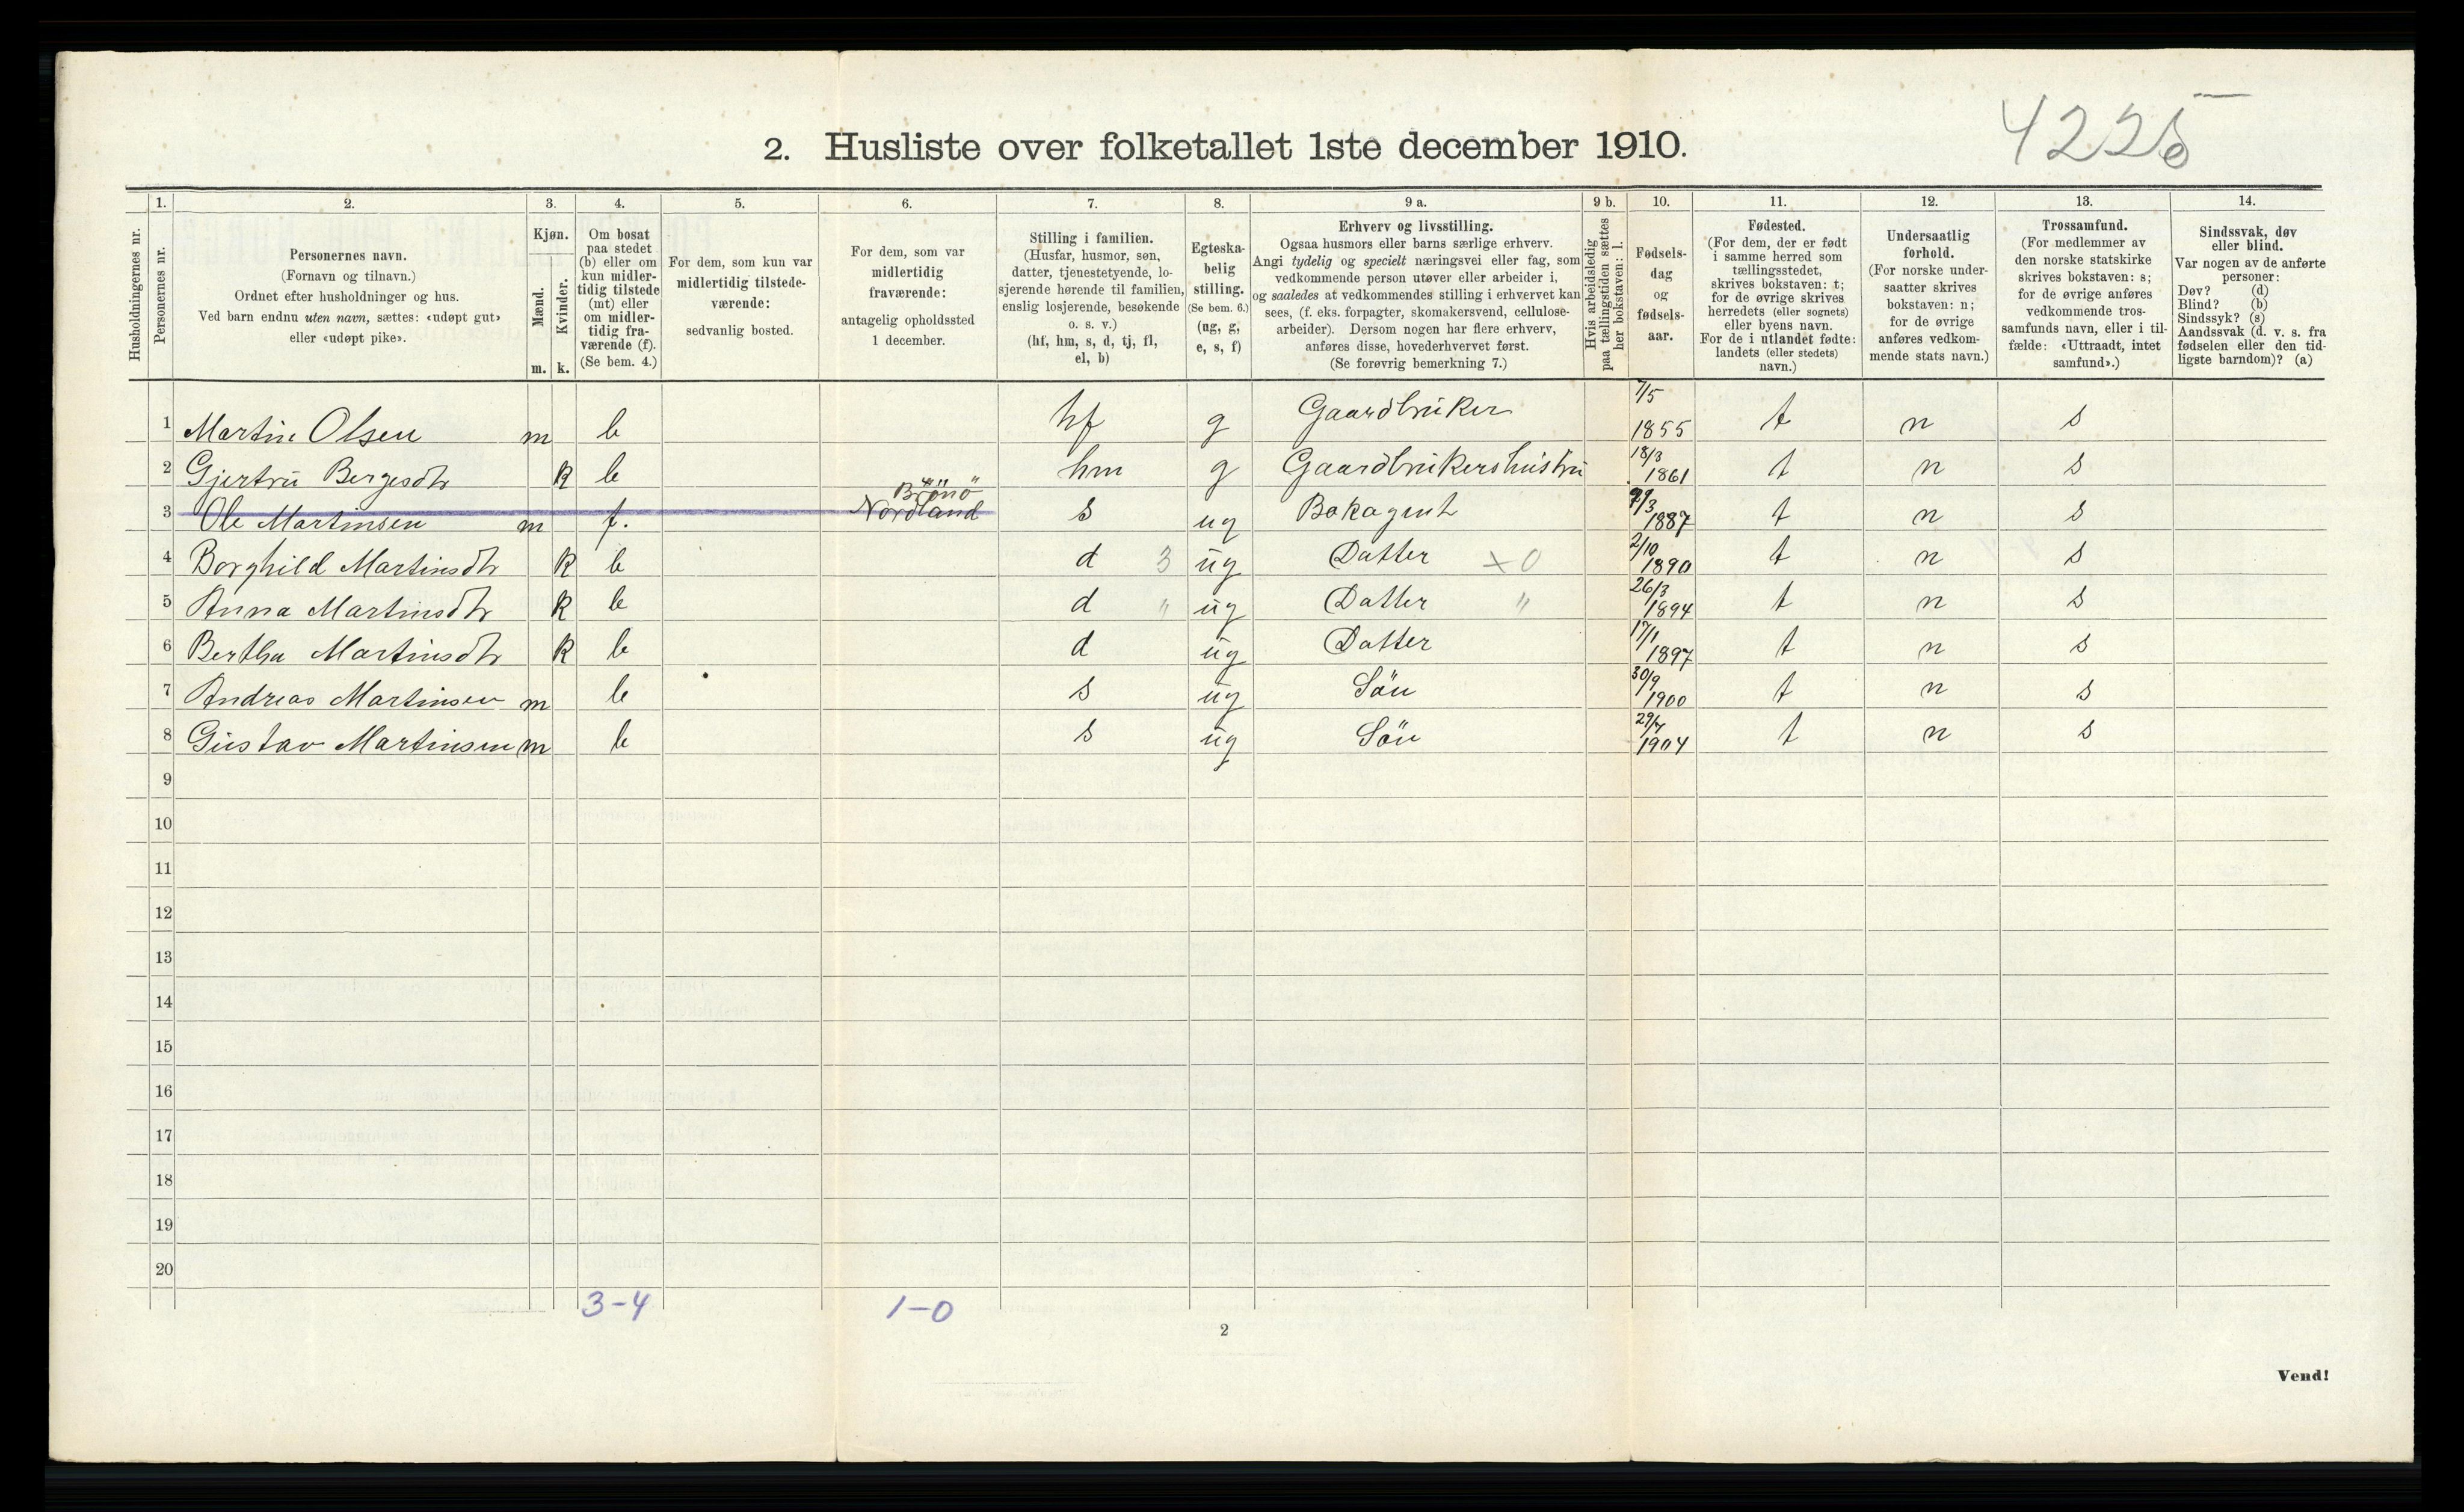 4225
2. Husliste over folketallet 1ste december 1910.
1. 2. 3. 4. 5. 6. 7. 8. 9 a. 9 b. 10. 11. 12. 13. 14.
Husholdningernes nr.
Personernes nr.
Personernes navn.
(Fornavn og tilnavn.)
Ordnet efter husholdninger og hus.
Ved barn endnu uten navn, sættes: «udøpt gut»
eller «udøpt pike».
Kjøn.
Mænd.
Kvinder.
m. k.
Om bosat
paa stedet
(b) eller om
kun midler-
tidig tilstede
(mt) eller
om midler-
tidig fra-
værende (f).
(Se bem. 4.)
For dem, som kun var
midlertidig tilstede-
værende:
sedvanlig bosted.
For dem, som var
midlertidig
fraværende:
antagelig opholdssted
1 december.
Stilling i familien.
(Husfar, husmor, søn,
datter, tjenestetyende, lo-
sjerende hørende til familien,
enslig losjerende, besøkende
o. s. v.)
(hf, hm, s, d, tj, fl,
el, b)
Egteska-
belig
stilling.
(Se bem. 6.)
(ug, g,
e, s, f)
Erhverv og livsstilling.
Ogsaa husmors eller barns særlige erhverv.
Angi tydelig og specielt næringsvei eller fag, som
vedkommende person utøver eller arbeider i,
og saaledes at vedkommendes stilling i erhvervet kan
sees, (f. eks. forpagter, skomakersvend, cellulose-
arbeider). Dersom nogen har flere erhverv,
anføres disse, hovederhvervet først.
(Se forøvrig bemerkning 7.)
Hvis arbeidsledig
paa tællingstiden sættes
her bokstaven: l.
Fødsels-
dag
og
fødsels-
aar.
Fødested.
(For dem, der er født
i samme herred som
tællingsstedet,
skrives bokstaven: t;
for de øvrige skrives
herredets (eller sognets)
eller byens navn.
For de i utlandet fødte:
landets (eller stedets)
navn.)
Undersaatlig
forhold.
(For norske under-
saatter skrives
bokstaven: n;
for de øvrige
anføres vedkom-
mende stats navn.)
Trossamfund.
(For medlemmer av
den norske statskirke
skrives bokstaven: s;
for de øvrige anføres
vedkommende tros-
samfunds navn, eller i til-
fælde: «Uttraadt, intet
samfund».)
Sindssvak, døv
eller blind.
Var nogen av de anførte
personer:
Døv? (d)
Blind? (b)
Sindssyk? (s)
Aandssvak (d. v. s. fra
fødselen eller den tid-
ligste barndom)? (a)
1 Martin Olsen m b hf g Gaardbruker 7/5 1855 t n s
2 Gjertru Bergesdtr k b hm g Gaardbrukershustru 18/3 1861 t n s
Brönö
3 Ole Martinsen m f. Nordland s ug Bokagent /3 1887 t n s
4 Borghild Martinsdtr k b d 3 ug Datter x0 2/10 1890 t n s
5 Anna Martinsdtr k b d " ug Datter " 26/3 1894 t n s
6 Bertha Martinsdtr k b d ug Datter 17/1 1897 t n s
7 Andreas Martinsen m b s ug Sön 30/9 1900 t n s
8 Gustav Martinsen m b s ug Sön 29/4 1904 t n s
9
10
11
12
13
14
15
16
17
18
19
20
3-4 1-0
2
Vend!